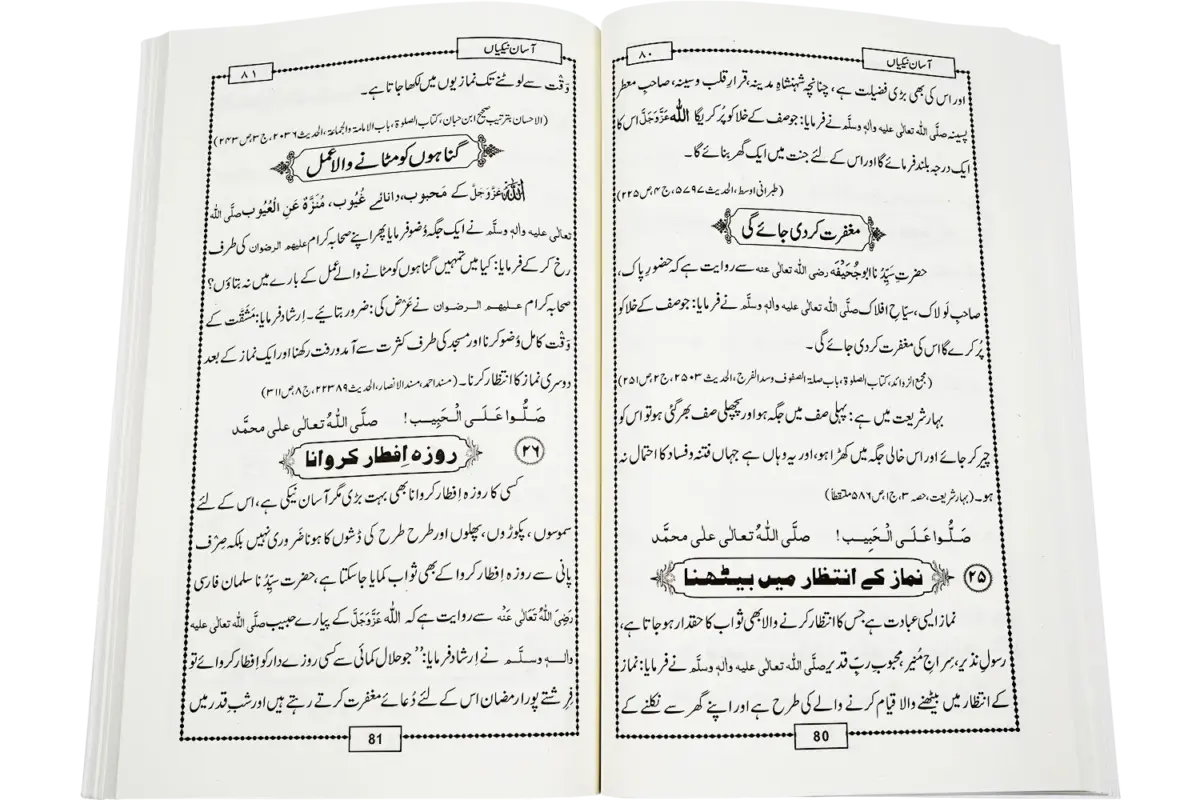 آسان نیکیاں
۸۰
اور اس کی بھی بڑی فضیلت ہے، چنانچہ شہنشاہِ مدینہ، قرارِ قلب و سینہ، صاحبِ معطر
پسینہ صلَّی اللہ تعالٰی علیہ والہٖ وسلَّم نے فرمایا: جو صف کے خلا کو پُر کریگا اللہ عَزَّوَجَلَّ اس کا
ایک درجہ بلند فرمائے گا اور اس کے لئے جنت میں ایک گھر بنائے گا۔
(طبرانی اوسط، الحدیث ۵۷۹۷، ج۴، ص۲۲۵)
مغفرت کردی جائے گی
حضرتِ سیِّدُنا ابو جُحَیْفَہ رضی اللہ تعالٰی عنہ سے روایت ہے کہ حضورِ پاک،
صاحبِ لَولاک، سیّاحِ افلاک صلَّی اللہ تعالٰی علیہ والہٖ وسلَّم نے فرمایا: جو صف کے خلا کو
پُر کرے گا اس کی مغفرت کردی جائے گی۔
(مجمع الزوائد، کتاب الصلوۃ، باب صلۃ الصفوف وسد الفرج، الحدیث ۲۵۰۳، ج۲، ص۲۵۱)
بہارِ شریعت میں ہے: پہلی صف میں جگہ ہو اور پچھلی صف بھر گئی ہو تو اس کو
چیر کر جائے اور اس خالی جگہ میں کھڑا ہو، اور یہ وہاں ہے جہاں فتنہ و فساد کا احتمال نہ
ہو۔ (بہار شریعت، حصہ ۳، ج۱، ص۵۸۶ ملتقطاً)
صَلُّوا عَلَی الْحَبِیب! صلَّی اللہُ تعالٰی علٰی محمَّد
۲۵ نماز کے انتظار میں بیٹھنا
نماز ایسی عبادت ہے جس کا انتظار کرنے والا بھی ثواب کا حقدار ہو جاتا ہے،
رسولِ نذیر، سِراجِ مُنیر، محبوبِ ربِّ قدیر صلَّی اللہ تعالٰی علیہ والہٖ وسلَّم نے فرمایا: نماز
کے انتظار میں بیٹھنے والا قیام کرنے والے کی طرح ہے اور اپنے گھر سے نکلنے کے
80
آسان نیکیاں
۸۱
وَقْت سے لوٹنے تک نمازیوں میں لکھا جاتا ہے۔
(الاحسان بترتیب صحیح ابن حبان، کتاب الصلوۃ، باب الامامۃ والجماعۃ، الحدیث ۲۰۳۶، ج۳، ص۲۴۳)
گناہوں کو مٹانے والا عمل
اللہ عَزَّوَجَلَّ کے مَحبوب، دانائے غُیُوب، مُنَزَّہٌ عَنِ الْعُیُوب صلَّی اللہ
تعالٰی علیہ والہٖ وسلَّم نے ایک جگہ وُضو فرمایا پھر اپنے صحابہ کرام علیھم الرضوان کی طرف
رخ کر کے فرمایا: کیا میں تمہیں گناہوں کو مٹانے والے عمل کے بارے میں نہ بتاؤں؟
صحابہ کرام علیھم الرضوان نے عَرْض کی: ضرور بتائیے۔ اِرشاد فرمایا: مَشَقَّت کے
وَقْت کامل وُضو کرنا اور مسجد کی طرف کثرت سے آمد ورفت رکھنا اور ایک نماز کے بعد
دوسری نماز کا انتظار کرنا۔ (مسند احمد، مسند الانصار، الحدیث ۲۲۳۸۹، ج۸، ص۳۱۱)
صَلُّوا عَلَی الْحَبِیب! صلَّی اللہُ تعالٰی علٰی محمَّد
۲۶ روزہ اِفطار کروانا
کسی کا روزہ اِفطار کروانا بھی بہت بڑی مگر آسان نیکی ہے، اس کے لئے
سموسوں، پکوڑوں، پھلوں اور طرح طرح کی ڈشوں کا ہونا ضَروری نہیں بلکہ صِرْف
پانی سے روزہ اِفطار کروا کے بھی ثواب کمایا جاسکتا ہے، حضرت سیِّدُنا سلمان فارسی
رَضِیَ اللہُ تَعَالٰی عَنْہ سے روایت ہے کہ اللہ عَزَّوَجَلَّ کے پیارے حبیب صلَّی اللہ تعالٰی علیہ
والہٖ وسلَّم نے اِرشاد فرمایا: ’’جو حلال کمائی سے کسی روزے دار کو اِفطار کروائے تو
فِرِشتے پورا رمضان اس کے لئے دُعائے مغفرت کرتے رہتے ہیں اور شبِ قدر میں
81